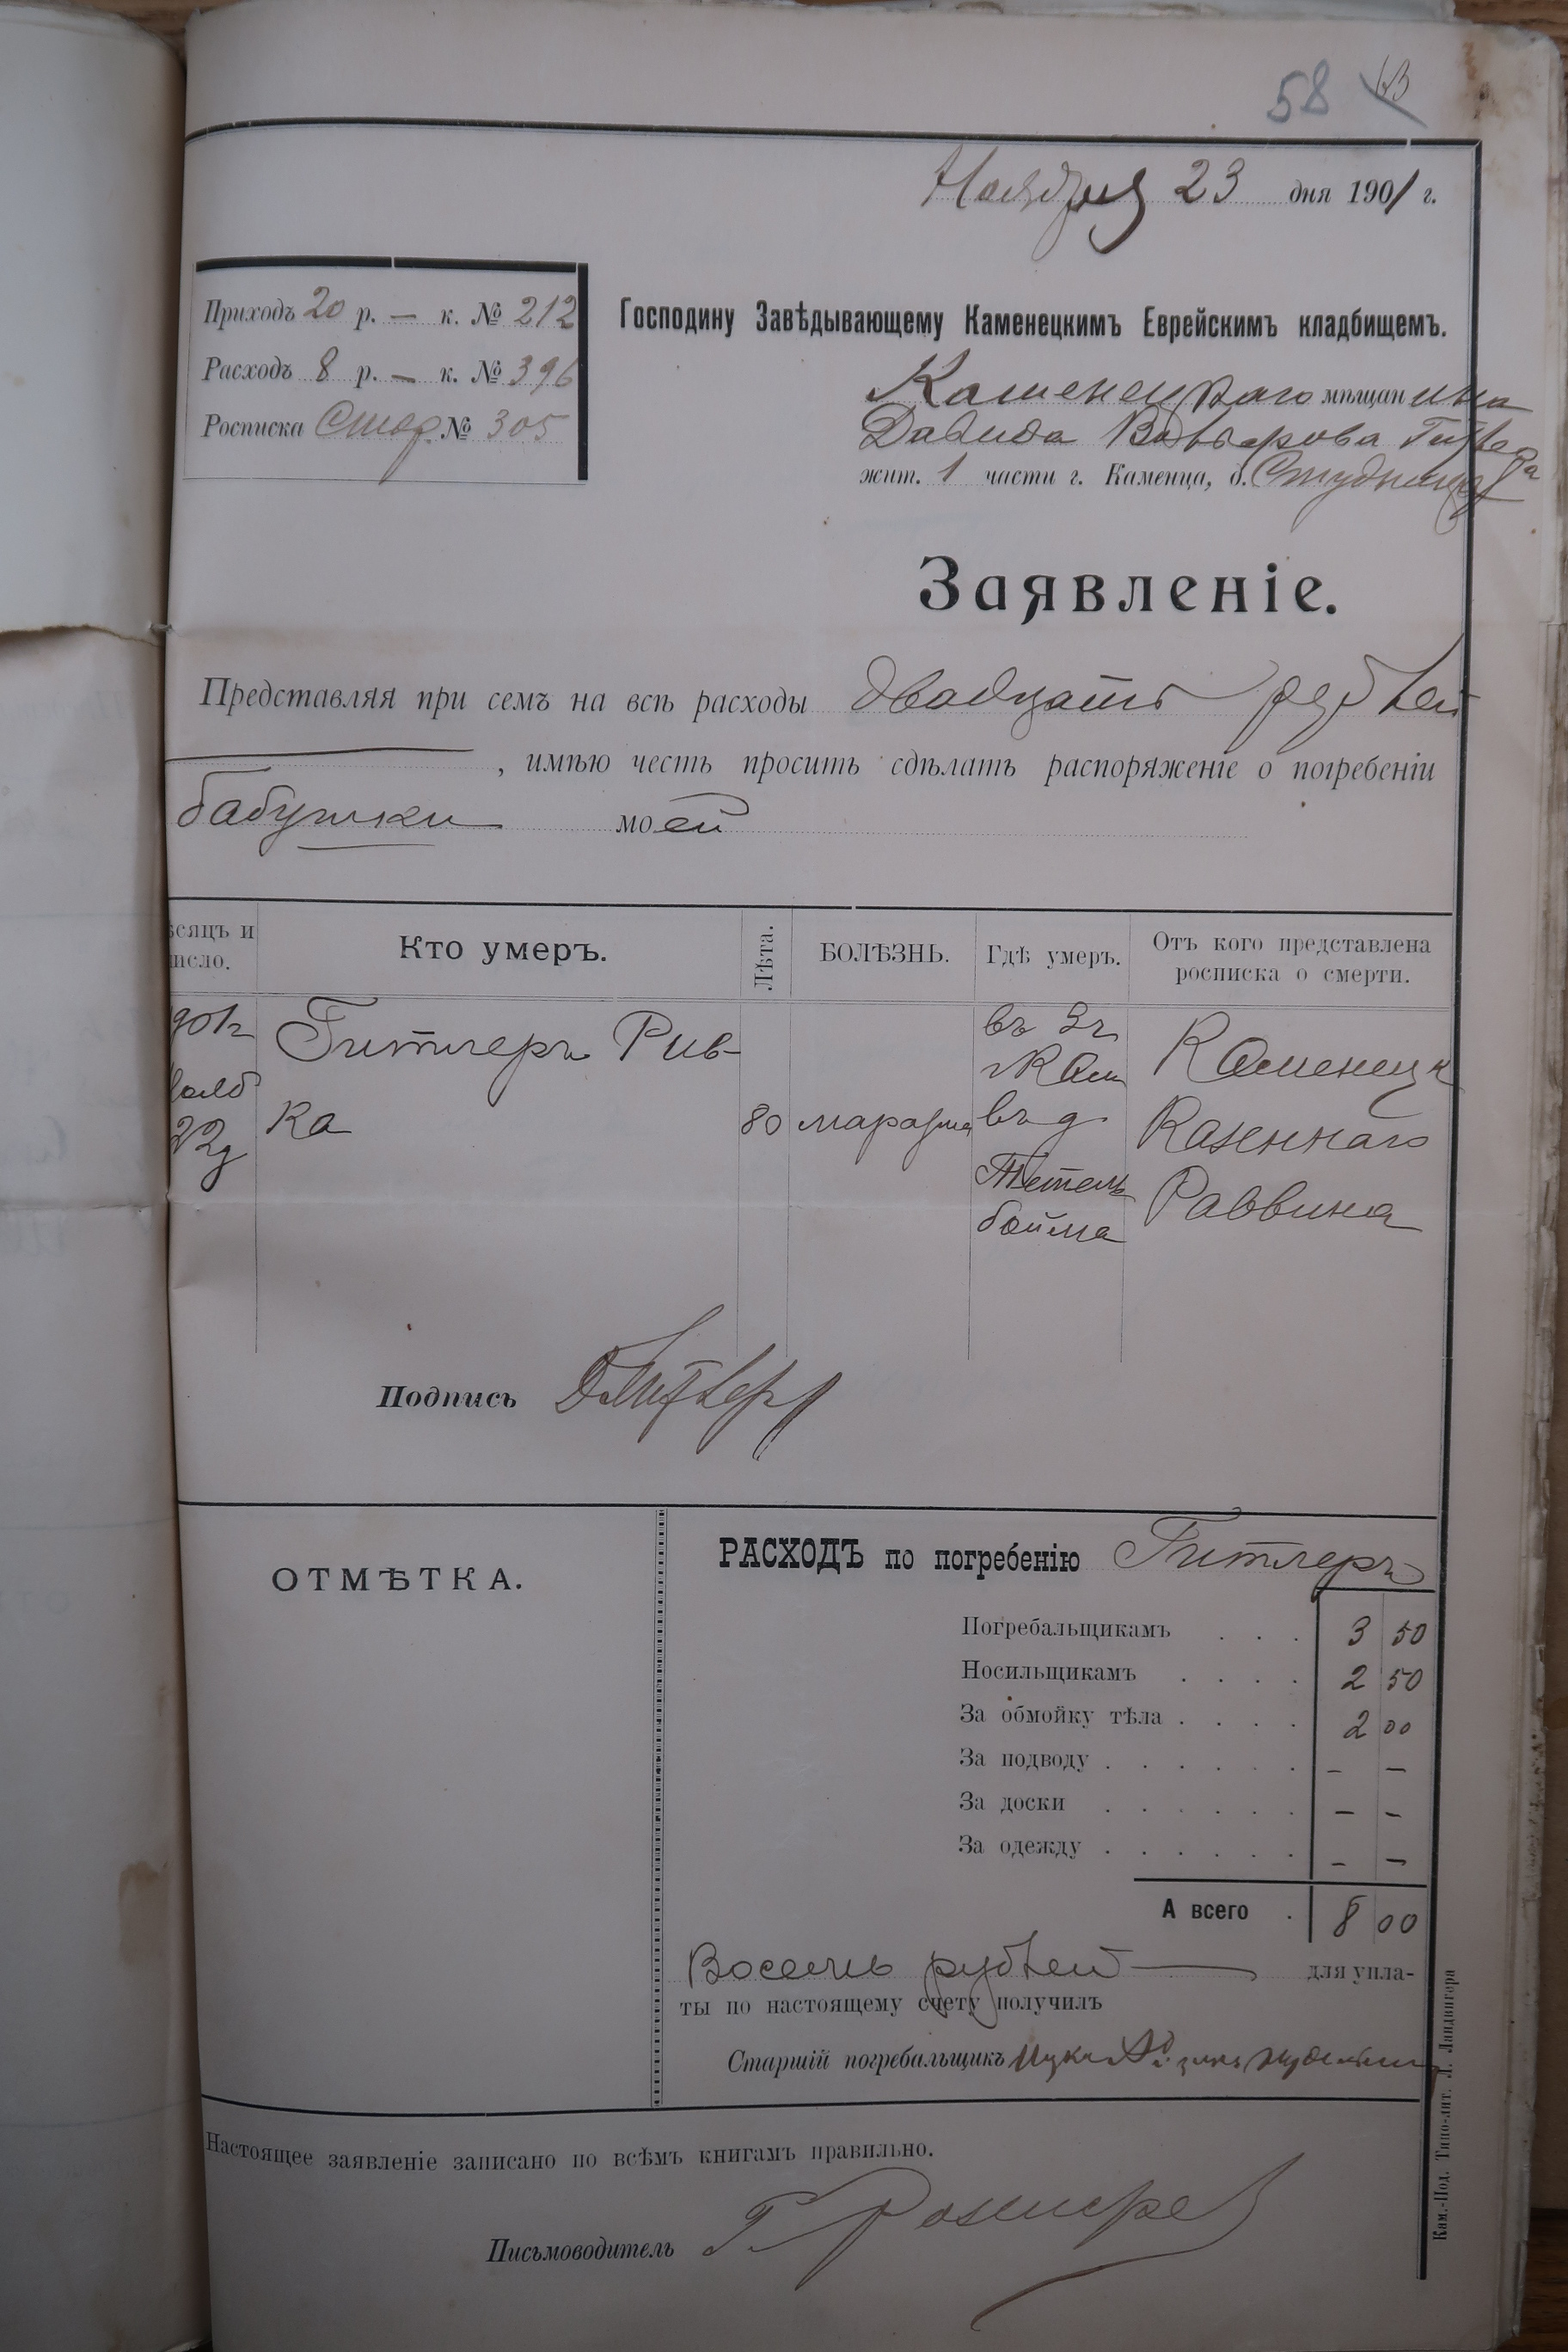 58
Ноября 23 дня 1901 г.
Приходъ 20 р. — к. № 212
Расходъ 8 р. — к. № 396
Росписка Стор. № 305
Господину Завѣдывающему Каменецкимъ Еврейскимъ кладбищемъ.
Каменецкаго мѣщанина
Давида
жит. 1 части г. Каменца, д.
Заявленіе.
Представляя при семъ на всѣ расходы двадцать рублей
—, имѣю честь просить сдѣлать распоряженіе о погребеніи
бабушки моей
ѣсяцъ и
число.
Кто умеръ.
Лѣта.
БОЛѢЗНЬ.
Гдѣ умеръ.
Отъ кого представлена
росписка о смерти.
901г
22д
Гитлеръ Рив-
ка
80
маразма
въ 3 ч
г Кам
въ д
Тетель
бойма
Каменецк
Казеннаго
Раввина
Подпись Д Гитлеръ
ОТМѢТКА.
РАСХОДЪ по погребенію Гитлеръ
Погребальщикамъ . . . 3 50
Носильщикамъ . . . . 2 50
За обмойку тѣла . . . . 2 00
За подводу . . . . . . – –
За доски . . . . . . – –
За одежду . . . . . . – –
А всего . 8 00
Восемь рублей — для упла-
ты по настоящему счету получилъ
Старшій погребальщикъ
Настоящее заявленіе записано по всѣмъ книгамъ правильно.
Письмоводитель
Кам.-Под. Типо-лит. Л. Ландвигера